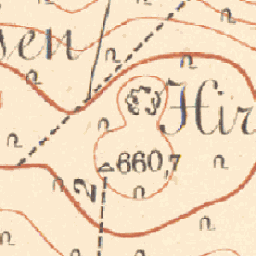 sen
Hir
660,7
2